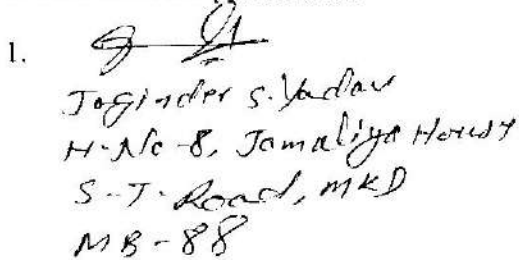 1.
Joginder S. Yadav
H-No-8, Jamaliya
S-J-Road, MKD
MB-88